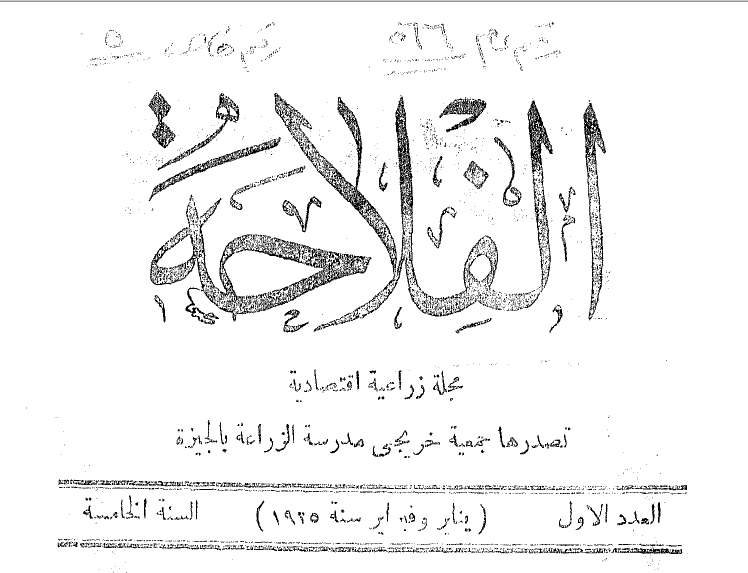 رقم عام ٥٦٦ رقم خاص ٥
الفلاحة
مجلة زراعية اقتصادية
تصدرها جمعية خريجى مدرسة الزراعة بالجيزة
العدد الاول ( يناير وفبراير سنة ١٩٢٥ ) السنة الخامسة